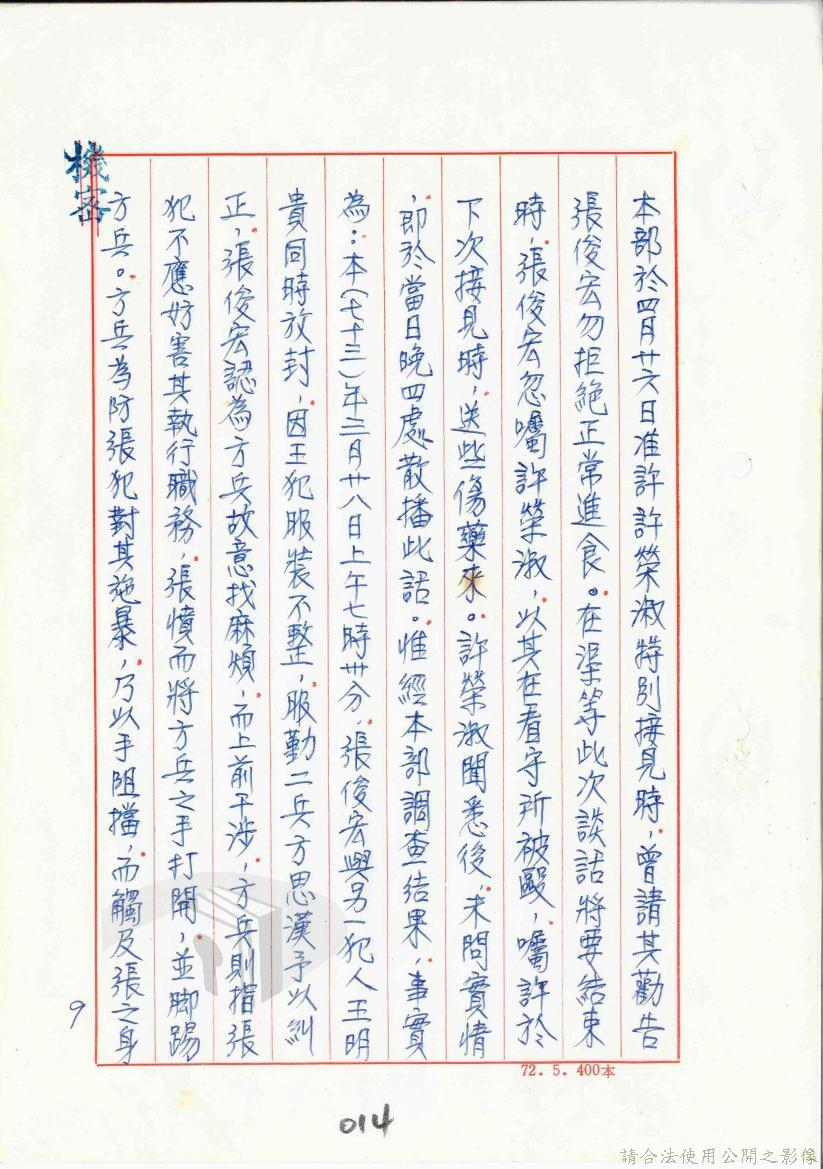 機密
本部於四月廿六日准許許榮淑特別接見時，曾請其勸告
張俊宏勿拒絕正常進食。在渠等此次談話將要結束
時，張俊宏忽囑許榮淑，以其在看守所被毆，囑許於
下次接見時，送些傷藥來。許榮淑聞悉後，未問實情
，即於當日晚四處散播此話。惟經本部調查結果，事實
為：本（七十三）年三月廿八日上午七時卅分，張俊宏與另一犯人王明
貴同時放封，因王犯服裝不整，服勤二兵方思漢予以糾
正，張俊宏認為方兵故意找麻煩，而上前干涉，方兵則指張
犯不應妨害其執行職務，張憤而將方兵之手打開，並脚踢
方兵。方兵為防張犯對其施暴，乃以手阻擋，而觸及張之身
9
72.5.400本
014
請合法使用公開之影像